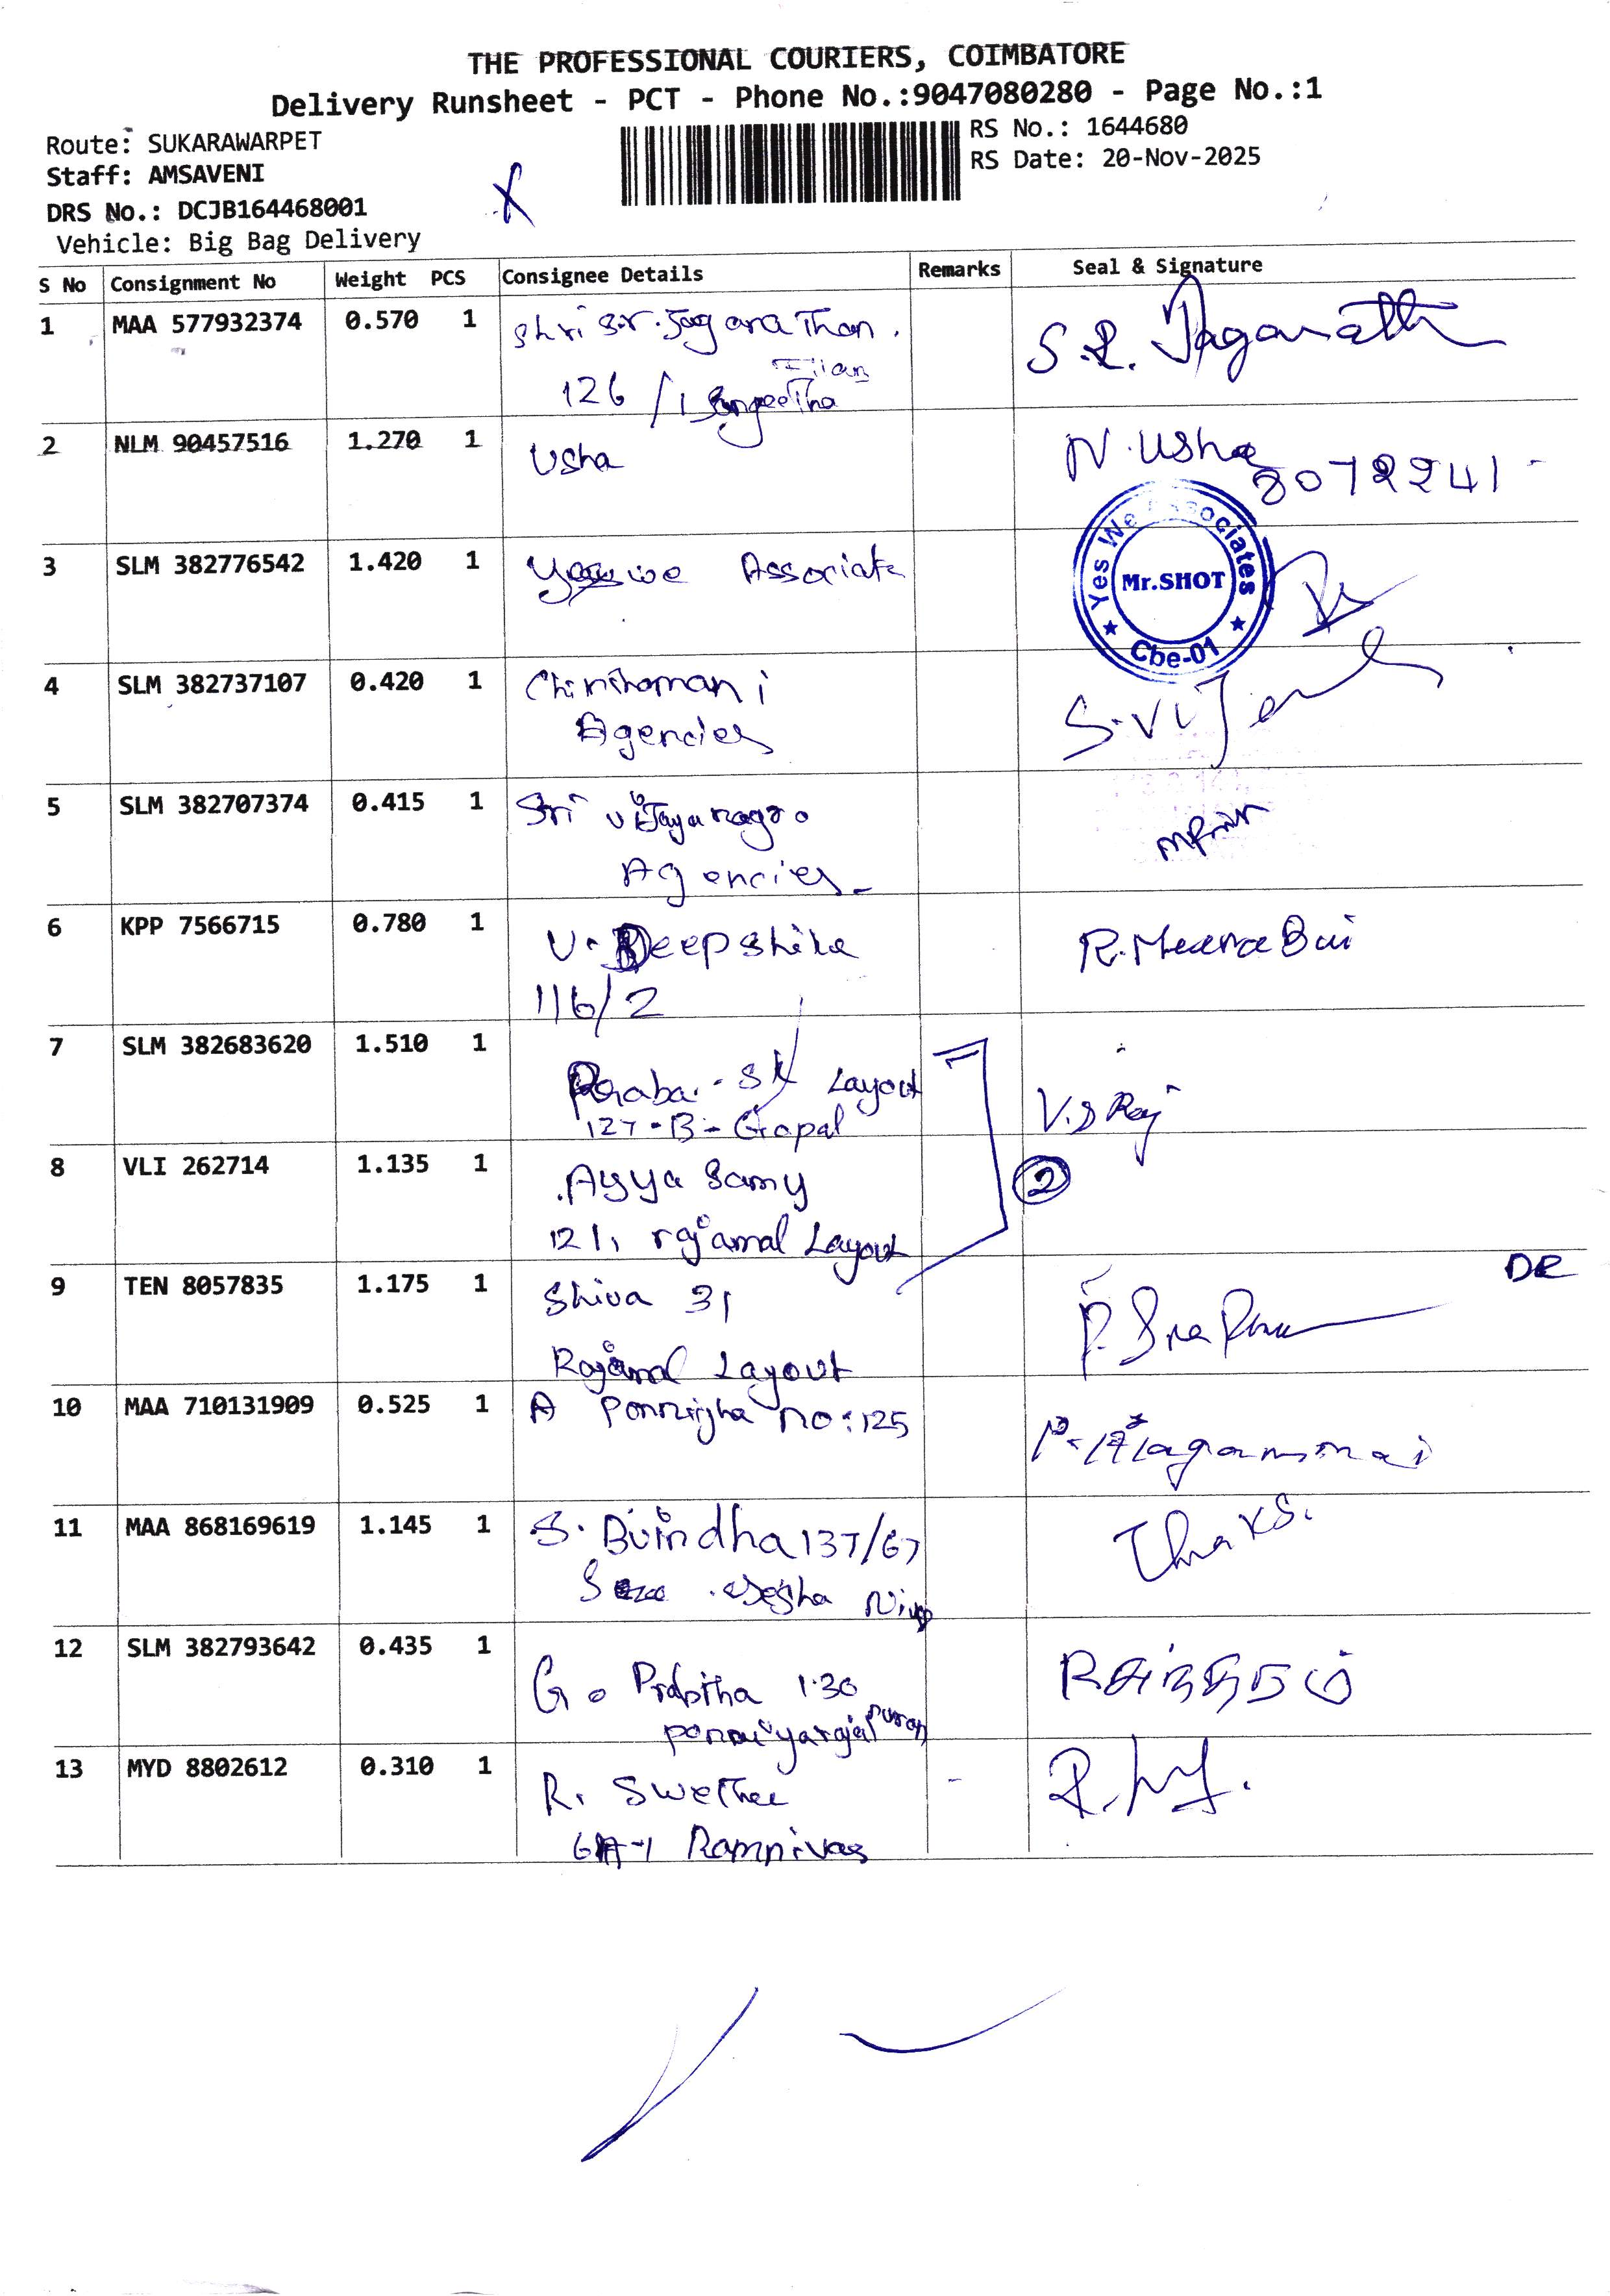 THE PROFESSIONAL COURIERS, COIMBATORE
Delivery Runsheet - PCT - Phone No.:9047080280 - Page No.:1
Route: SUKARAWARPET
RS No.: 1644680
Staff: AMSAVENI
RS Date: 20-Nov-2025
DRS No.: DCJB164468001
Vehicle: Big Bag Delivery
S No Consignment No Weight PCS Consignee Details Remarks Seal & Signature
1 MAA 577932374 0.570 1 Shri S.r. Jagana Than. S.R. Jaganath
126/1 Sangeetha
2 NLM 90457516 1.270 1 Usha N. Usha
8072241
3 SLM 382776542 1.420 1 Yes we Associate
Yes We Associates
Mr.SHOT
Cbe-01
4 SLM 382737107 0.420 1 Chinthamani
Agencies
5 SLM 382707374 0.415 1 Sri
Agencies
6 KPP 7566715 0.780 1 V. Deepshika R. Meera Bai
116/2
7 SLM 382683620 1.510 1 Layout
127-B-Gopal V.S Raj
8 VLI 262714 1.135 1 Ayya Samy 2
121, rajamal Layout
9 TEN 8057835 1.175 1 Shiva 31 DR
Rajamal Layout
10 MAA 710131909 0.525 1 A no:125 P. Alagammai
11 MAA 868169619 1.145 1 S. 137/67
12 SLM 382793642 0.435 1
G.
13 MYD 8802612 0.310 1 R. Swethee
Ramnivas